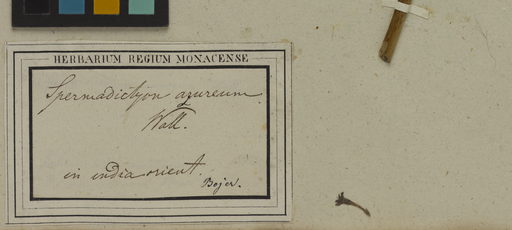 HERBARIUM REGIUM MONACENSE
Spermadictyon azureum
Wall.
in india orient.
Bojer.